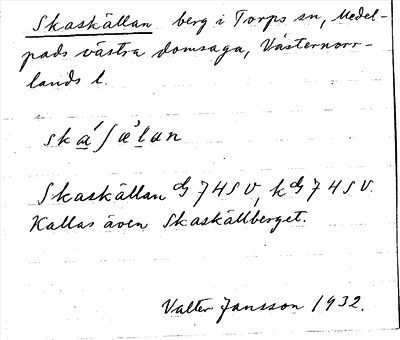 Skaskällan berg i Torps sn, Medel-
pads västra domsaga, Västernorr-
lands l.
ská∫æ'lan
Skaskällan G 74 SV, k G 74 SV.
Kallas även Skaskällberget.
Valter Jansson 1932.